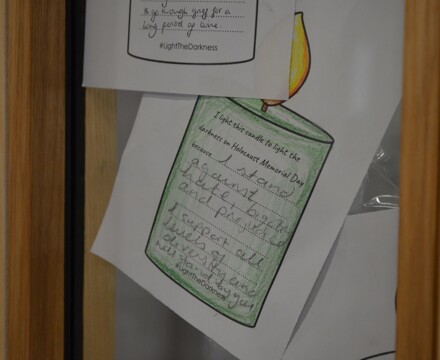 to go through grief for a
long period of time.
#LightTheDarkness
I light this candle to light the
darkness on Holocaust Memorial Day
because I stand
against
hate, bigotry
and prejudice
I support all
levels of
diversity and
will stand by you
#LightTheDarkness